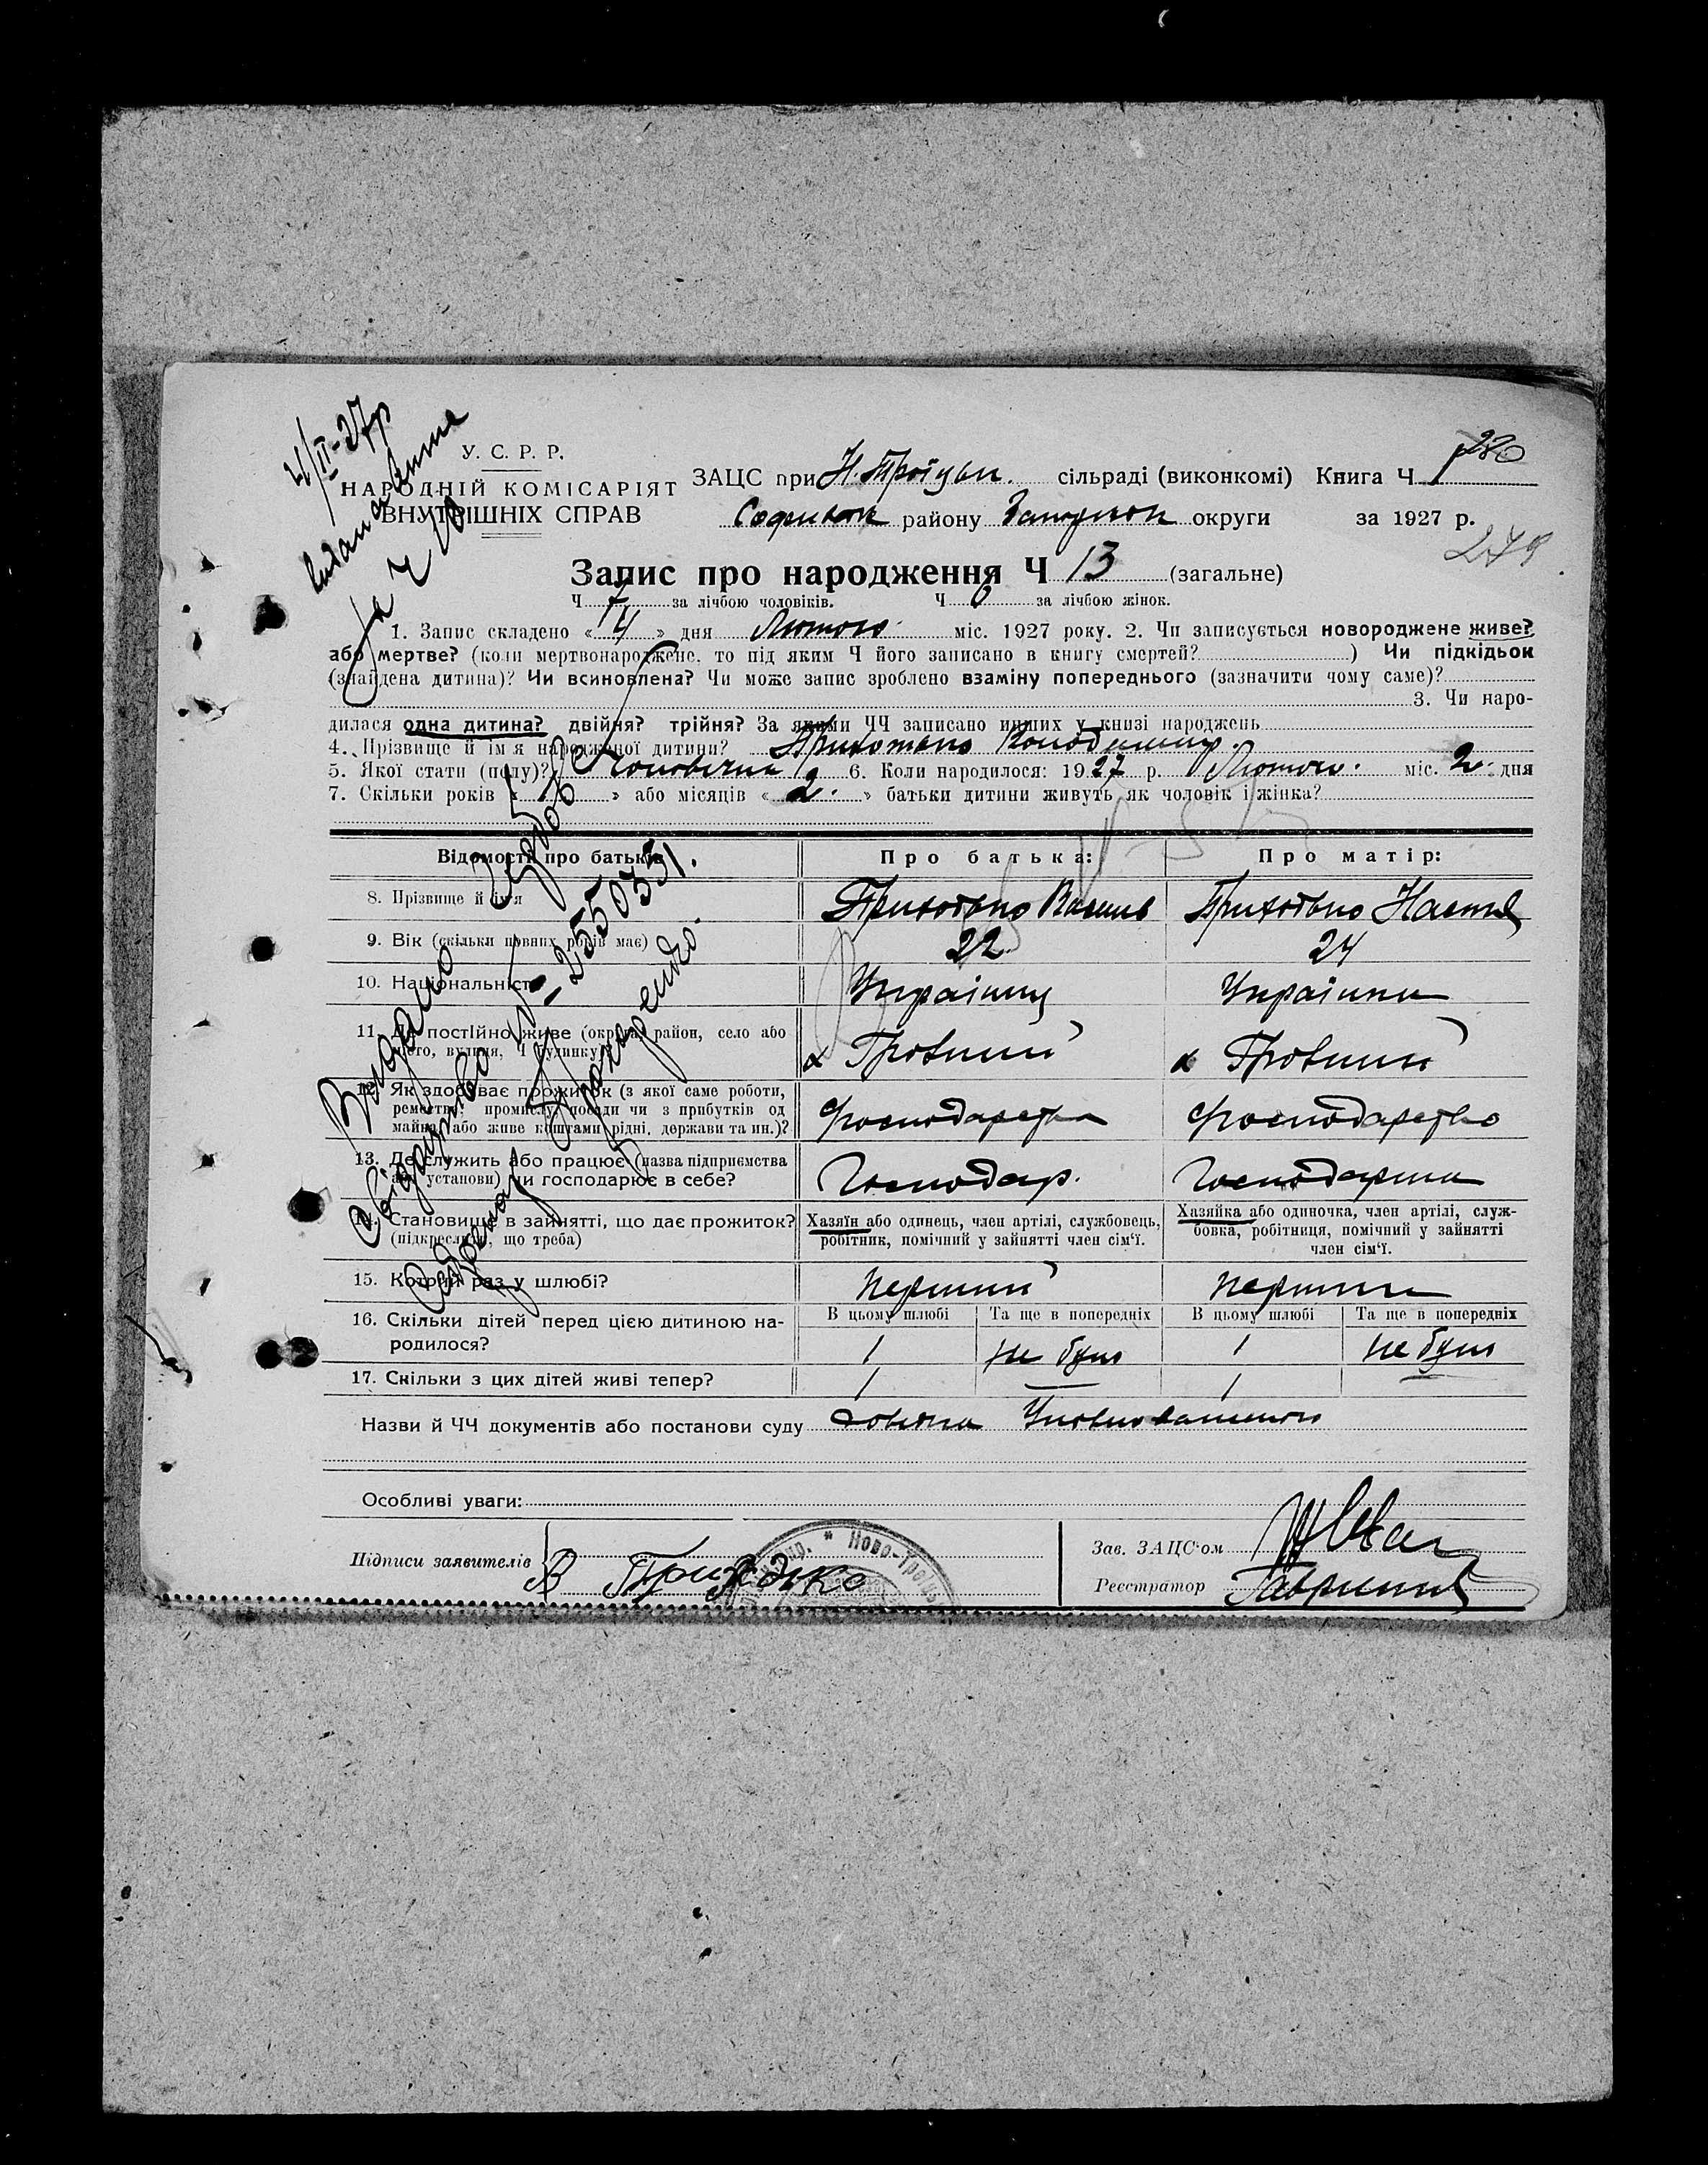 4/II-27р
за Ч 10
280
У. С. Р. Р.
НАРОДНІЙ КОМІСАРІЯТ
ВНУТРІШНІХ СПРАВ
ЗАЦС при Н. Троїцьк. сільраді (виконкомі) Книга Ч 1
Софиївск району Запоріжск округи за 1927 р.
279
Запис про народження Ч 13 (загальне)
Ч 7 за лічбою чоловіків. Ч 6 за лічбою жінок.
1. Запис складено « 4 » дня Лютого міс. 1927 року. 2. Чи записується новороджене живе?
або мертве? (коли мертвонароджене, то під яким Ч його записано в книгу смертей? ) Чи підкідьок
(знайдена дитина)? Чи всиновлена? Чи може запис зроблено взаміну попереднього (зазначити чому саме)?
3. Чи наро-
дилася одна дитина? двійня? трійня? За якими ЧЧ записано инших у книзі народжень
4. Прізвище й ім'я народженої дитини? Приходько Володимир.
5. Якої стати (полу)? Чоловіча 6. Коли народилося: 1927 р. Лютого міс. 2 дня
7. Скільки років « » або місяців « 2 » батьки дитини живуть як чоловік і жінка?
Відомості про батьків Про батька: Про матір:
8. Прізвище й ім'я Приходько Василь Приходько Настя
9. Вік (скільки повних років має) 22 24
10. Національність Українець Українка
11. Де постійно живе (округа, район, село або
місто, вулиця, Ч будинку)
12. Як здобуває прожиток (з якої саме роботи,
ремества, промислу, посади чи з прибутків од
майна, або живе коштами рідні, держави та ин.)? Господарство Господарство
13. Де служить або працює (назва підприємства
або установи) чи господарює в себе? Господар. Господарка
14. Становище в зайнятті, що дає прожиток? Хазяїн або одинець, член артілі, службовець, Хазяйка або одиночка, член артілі, служ-
(підкреслити, що треба) робітник, помічний у зайнятті член сім'ї. бовка, робітниця, помічний у зайнятті
член сім'ї.
15. Котрий раз у шлюбі? Перший Перший
В цьому шлюбі Та ще в попередніх В цьому шлюбі Та ще в попередніх
16. Скільки дітей перед цією дитиною на-
родилося? 1 не було 1 не було
17. Скільки з цих дітей живі тепер? 1 1
Назви й ЧЧ документів або постанови суду
Особливі уваги:
Підписи заявителів В Приходько
Зав. ЗАЦС'ом
Реєстратор
* Ново-Троїцьк
Видано
свідоцтво № 255033